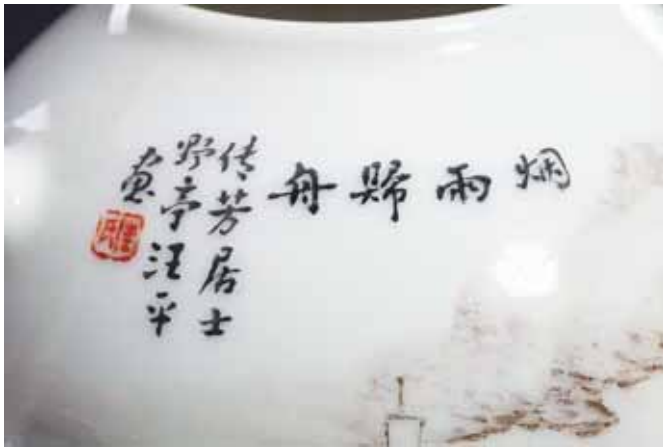 烟雨歸舟
传芳居士
野亭汪平
畫